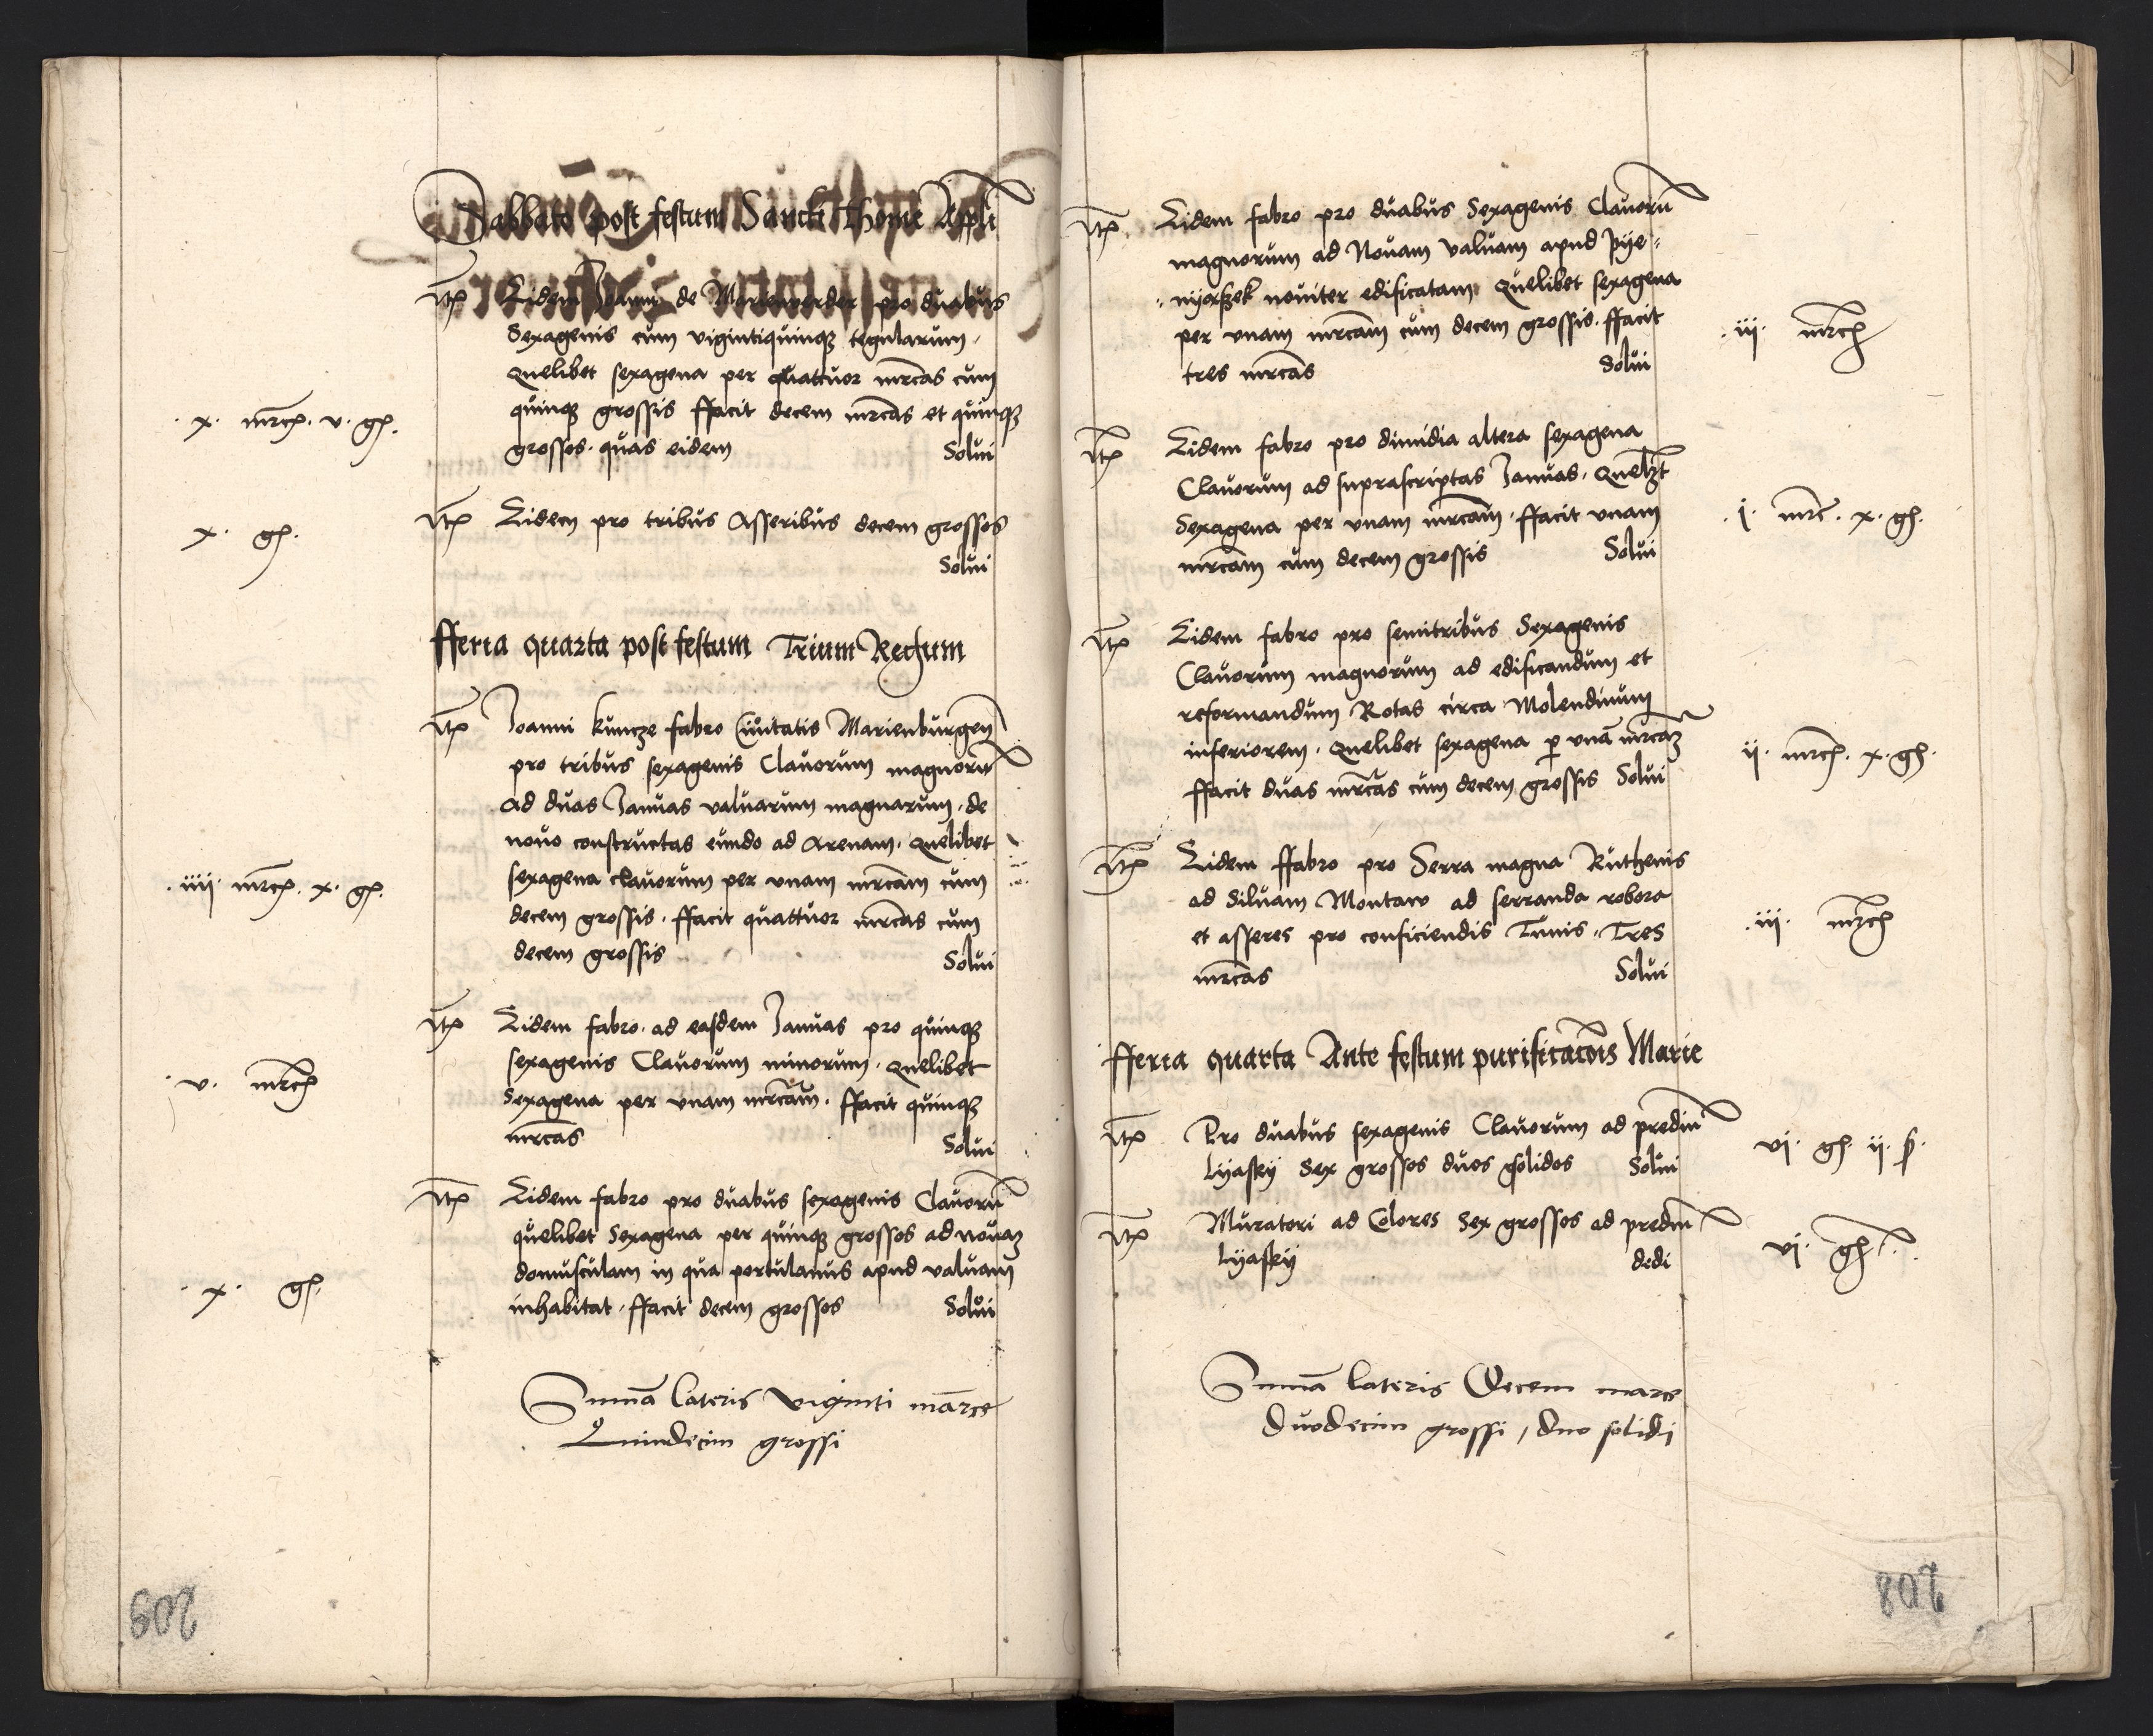 Sabbato post festum Sancti Thome Appli
Itm Eidem Joanni de Marienwerder pro duabus
Sexagenis cum vigintiquinqz tegularum.
quelibet sexagena per quattuor mrcas cum
quinqz grossis ffacit decem mrcas et quinqz
. x. mrcs. v. gs. grossos. quas eidem Solui
x. gs. Itm Eidem pro tribus Asseribus decem grossos
Solui
fferia quarta post festum Trium Regum
Itm Joanni Kuncze fabro Civitatis Marienburgen
pro tribus sexagenis Clavorum magnoru
ad duas Januas valuarum magnarum. de
novo constructas eundo ad Arenam. quelibet
. iiij. mrcs. x. gs. sexagena clavorum per unam mrcam cum
decem grossis. ffacit quattuor mrcas cum
decem grossis Solui
Itm Eidem fabro. ad easdem Januas pro quinqz
sexagenis Clavorum minorum. quelibet
. v. mrcs Sexagena per unam mrcam. ffacit quinqz
mrcas Solui
Itm Eidem fabro pro duabus sexagenis Clavoru
quelibet Sexagena per quinqz grossos ad novaz
domusculam in qua portulanus apud valuam
. x. gs. inhabitat. ffacit decem grossos Solui
Summa lateris viginti marce
Quindecim grossi
209
Itm Eidem fabro pro duabus Sexagenis Clavoru
magnorum ad Novam valuam apud Pye-
-nyaszek noviter edificatam quelibet sexagena
per unam mrcam cum decem grossis. ffacit . iij. mrcs
tres mrcas Solui
Itm Eidem fabro pro dimidia altera sexagena
Clavorum ad suprascriptas Januas. quelzt
Sexagena per unam mrcam. ffacit unam . j. mrc. x. gs.
mrcam cum decem grossis Solui
Itm Eidem fabro pro semitribus Sexagenis
Clavorum magnorum ad edificandum et
reformandum Rotas circa Molendinum
inferiorem. quelibet sexagena p unã mrcaz ij. mrcs. x. gs.
ffacit duas mrcas cum decem grossis Solui
Itm Eidem ffabro pro Serra magna Ruthenis
ad Siluam Montaw ad serranda robora
et asseres pro conficiendis Tunis. Tres . iij. mrcs
mrcas Solui
fferia quarta Ante festum purificacõis Marie
Itm Pro duabus sexagenis Clavorum ad prediu vj. gs. ij. s.
Lyasky Sex grossos duos solidos Solui
Itm Muratori ad Colores Sex grossos ad prediu vj. gs.
Lyasky dedi
Summa lateris Decem marce
duodecim grossi, duo solidi
208